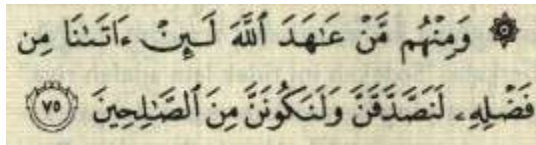 ۞ وَمِنْهُم مَّنْ عَٰهَدَ ٱللَّهَ لَئِنْ ءَاتَىٰنَا مِن
فَضْلِهِۦ لَنَصَّدَّقَنَّ وَلَنَكُونَنَّ مِنَ ٱلصَّٰلِحِينَ ٧٥